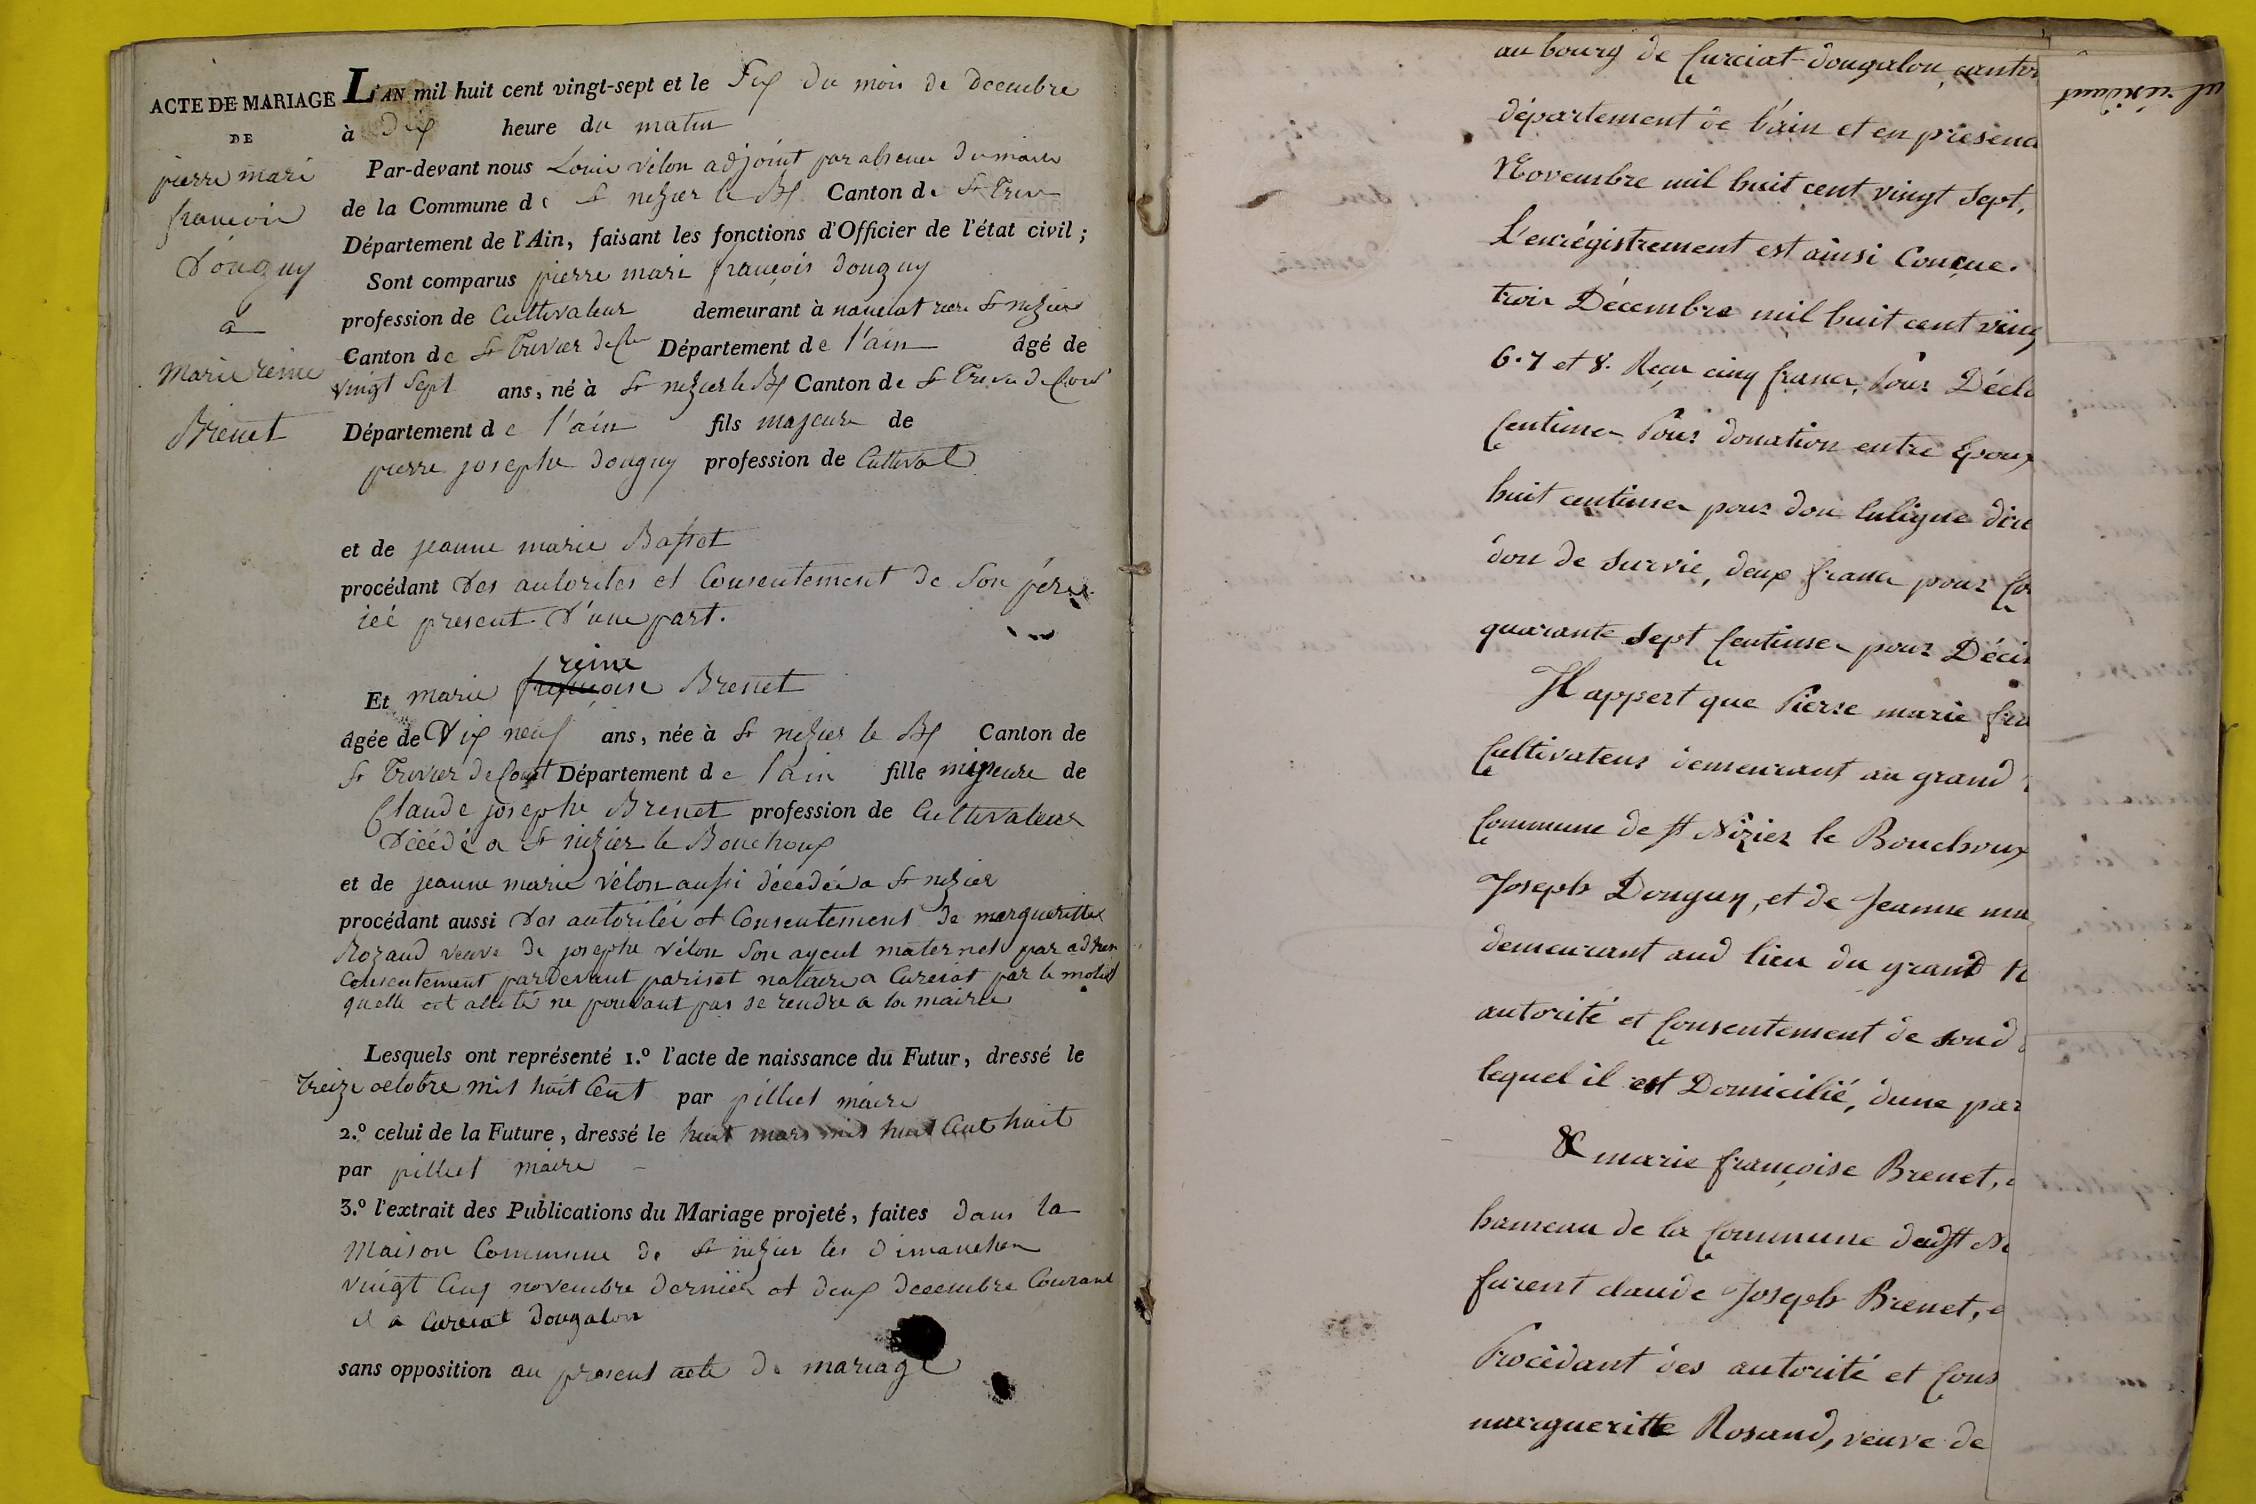 ACTE DE MARIAGE
DE
pierre mari
françois
Douguy
a
Marie reine
Brenet
L'AN mil huit cent vingt-sept et le Six du mois de decembre
à Dix heure du matin
Par-devant nous Louis vélon adjoint par absence du maire
de la Commune de St nizier le Bx Canton de St Triv
Département de l'Ain, faisant les fonctions d'Officier de l'état civil ;
Sont comparus pierre mari françois douguy
profession de Cultivateur demeurant à nanclat rière St nizier
Canton de St Trivier de Ctes Département de l'ain âgé de
vingt Sept ans, né à St nizier le Bx Canton de St Trivier de Court
Département de l'ain fils majeure de
pierre josephe douguy profession de Cultivat
et de jeanne marie Basset
procédant Des autorites et Consentement de Son père
icé present D'une part.
reine
Et marie françoise Brenet
âgée de Dix neuf ans, née à St nizier le Bx Canton de
St Trivier de Court Département de l'ain fille mineure de
Claude josephe Brenet profession de Cultivateur
Décédé a St nizier le Bouchoux
et de jeanne marie vélon aussi décedée a St nizier
procédant aussi Des autorités et Consentement de margueritte
Rozand veuve de josephe vélon Son ayeul maternel par
Consentement pardevant pariset notaire a Curciat par le motif
quelle est alité ne pouvant pas se rendre a la mairie
Lesquels ont représenté 1.º l'acte de naissance du Futur, dressé le
treize octobre mil huit Cent par pilliet maire
2.º celui de la Future, dressé le huit mars mil huit Cent huit
par pilliet maire
3.º l'extrait des Publications du Mariage projeté, faites dans la
Maison Commune de St nizier les dimanches
vingt Cinq novembre dernier et deux decembre Courant
et a Curciat Dougalon
sans opposition au present acte de mariage
au bourg de Curciat-dougalon, canton
département de l'ain et en presenc
Novembre mil huit cent vingt sept,
L'enrégistrement est ainsi Conçue.
trois Décembre mil huit cent ving
6. 7 et 8. Reçu cinq francs, pour Décla
Centimes Pour donation entre Epoux
huit centimes pour don enligne dire
don de survie, deux francs pour Co
quarante sept Centimes pour Décim
Il appert que Pierre marie fra
Cultivateur demeurant au grand
Commune de St Nizier le Bouchoux
Joseph Douguy, et de Jeanne ma
demeurant aud lieu du grand N
autorité et Consentement de sond
lequel il est Domicilié, d'une par
& marie françoise Brenet,
hameau de la Commune dudt St Ni
furent claude Joseph Brenet,
Procédant des autorité et Cons
margueritte Rosand, veuve de